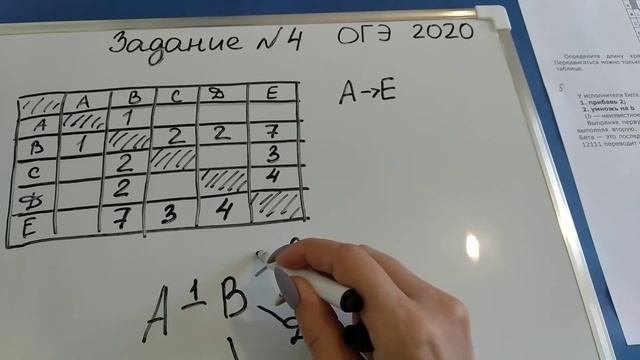 Задание №4 ОГЭ 2020
A B C D E
A 1
B 1 2 2 7
C 2 3
D 2 4
E 7 3 4
A→E
A 1 B
Определите длину
Передвигаться можно только
таблице.
5
У исполнителя Бета
1. прибавь 2;
2. умножь на b
(b — неизвестное
Выполняя первую
выполняя вторую,
Бета — это
12111 переводит